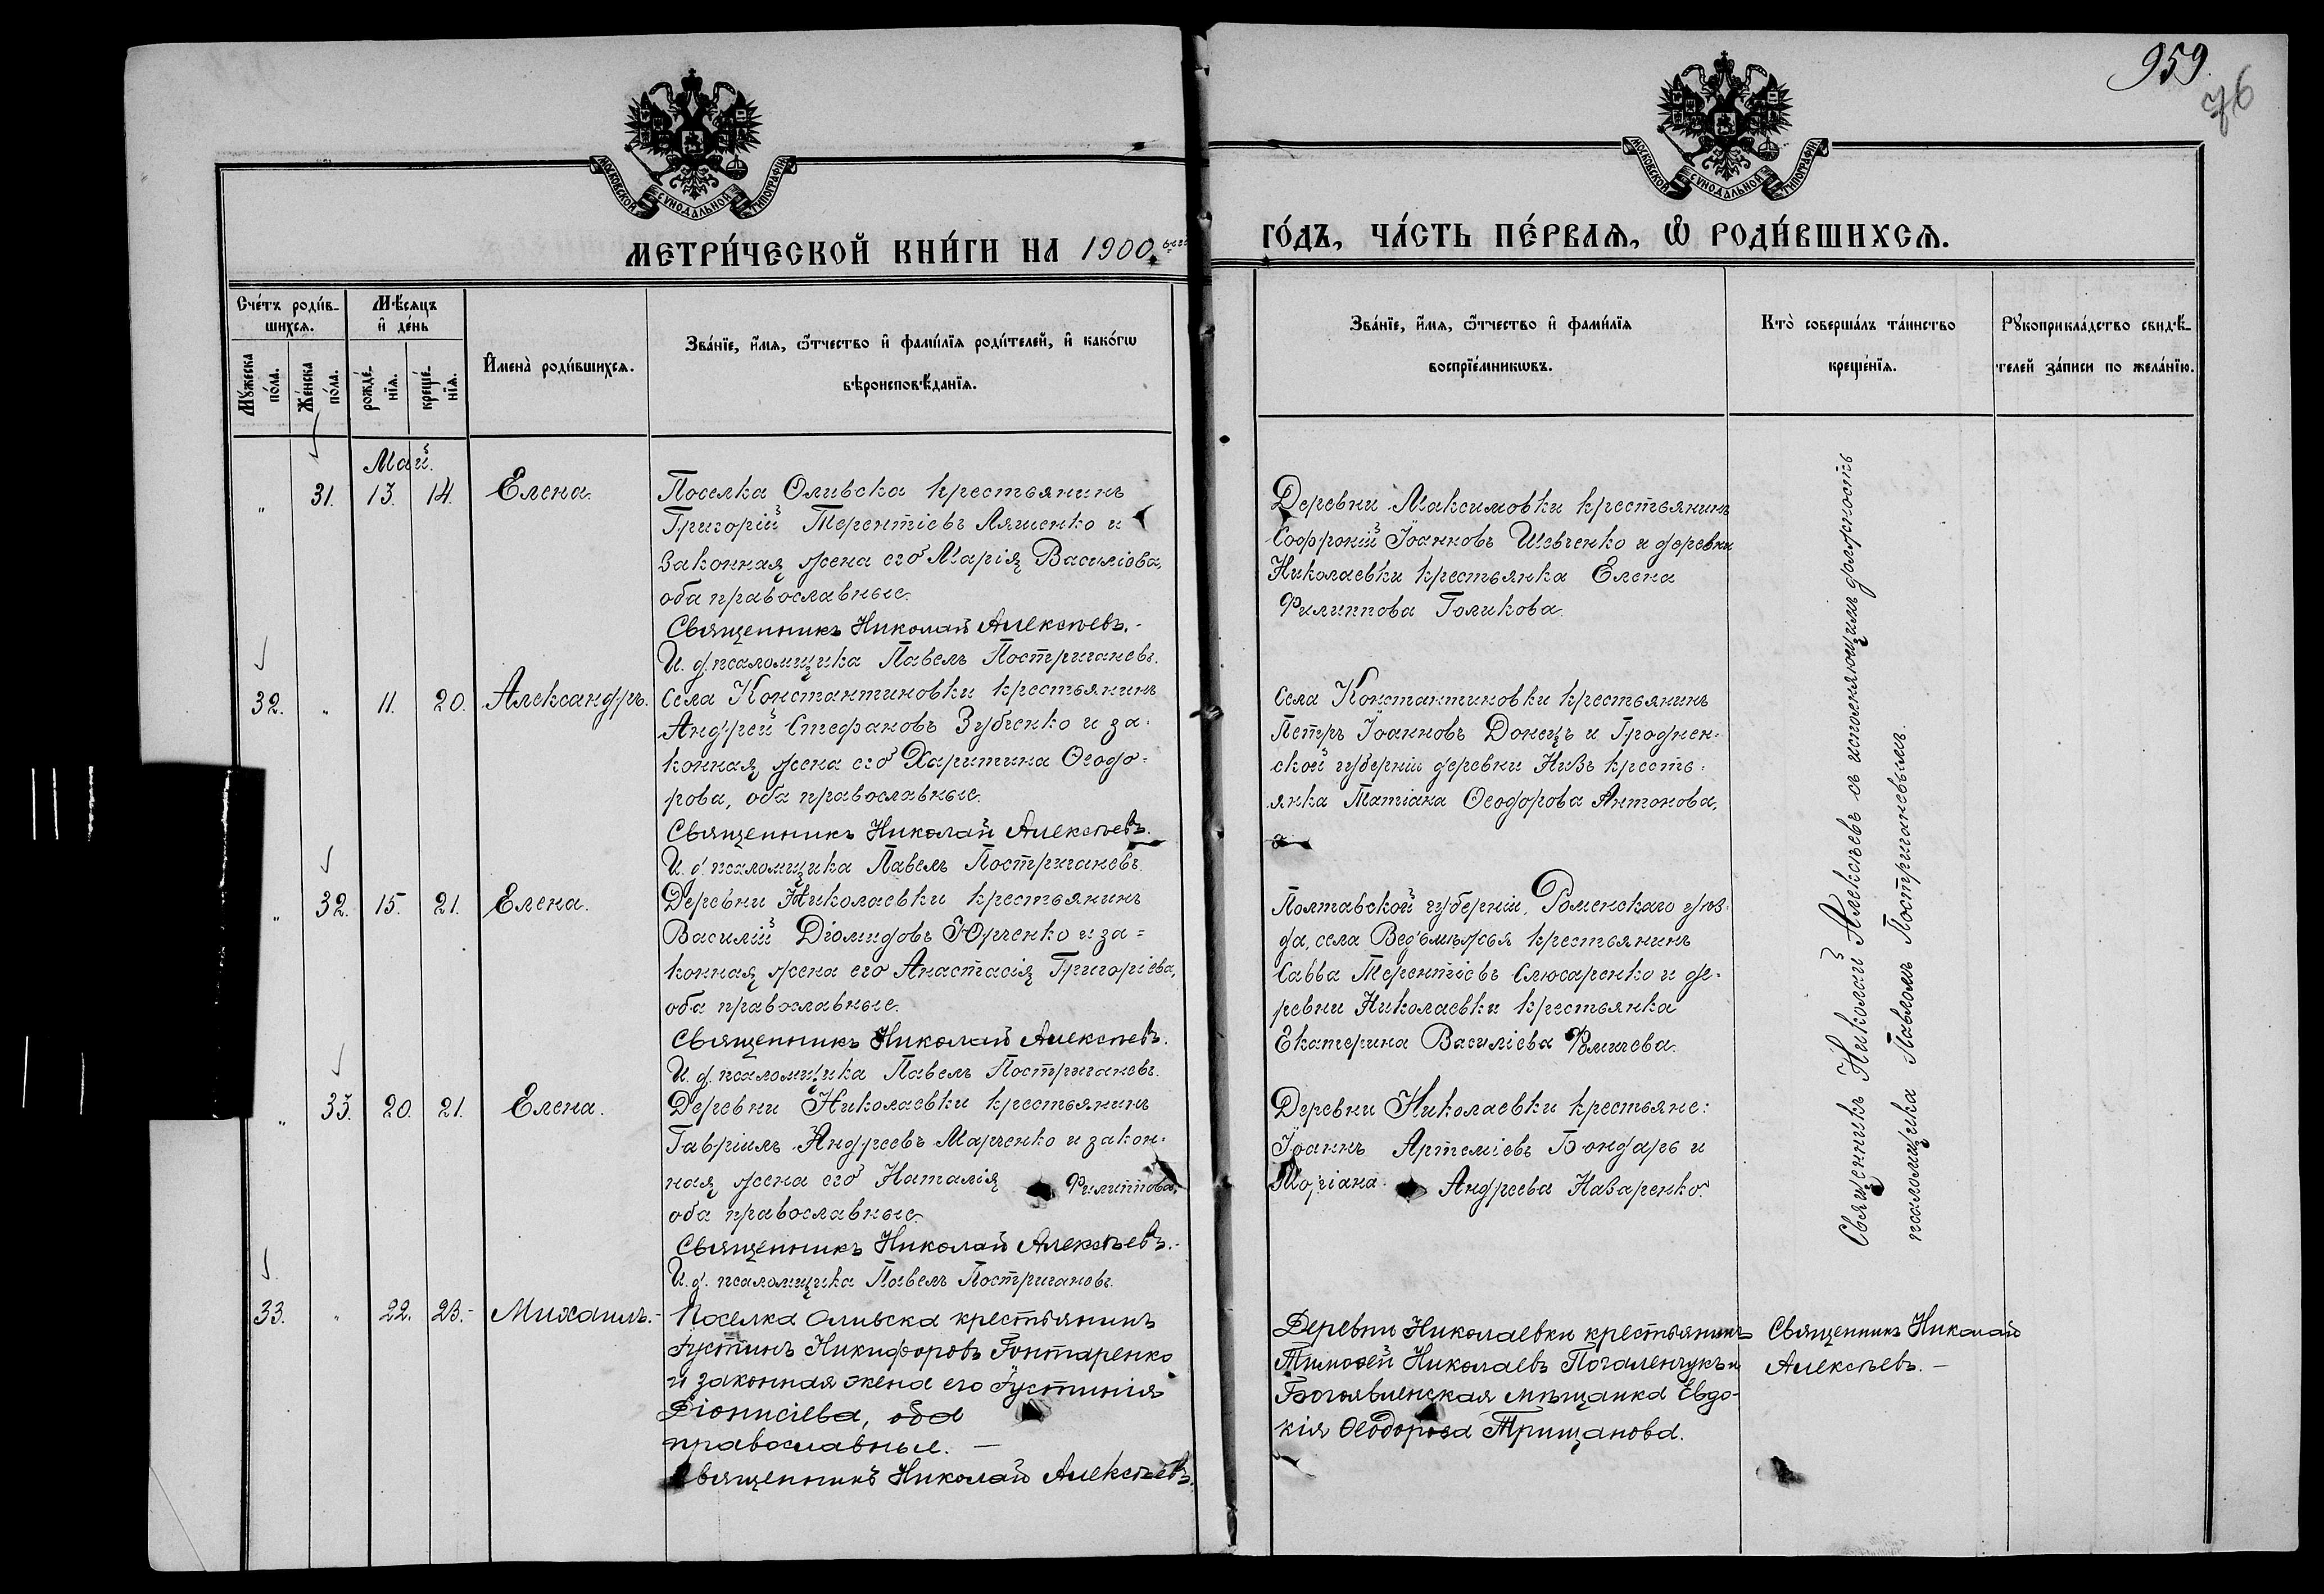 959.
76
МОСКОВСКОЙ СѴНОДАЛЬНОЙ ТИПОГРАФІИ
МОСКОВСКОЙ СѴНОДАЛЬНОЙ ТИПОГРАФІИ
МЕТРИ́ЧЕСКОЙ КНИ́ГИ НА 1900
ГО́ДЪ, ЧА́СТЬ ПЕ́РВАЯ, Ѿ РОДИ́ВШИХСЯ.
Сче́тъ роди́в-
шихся.
Мꙋ́жеска по́ла.
Же́нска по́ла.
Мѣ́сяцъ и҆ де́нь
рожде́-
нїя.
креще́-
нїя.
И҆мена̀ роди́вшихся.
Зва́нїе, и҆́мя, ѻ҆́тчество и҆ фами́лїя роди́телей, и҆ како́гѡ
вѣроисповѣ́данїя.
Зва́нїе, и҆́мя, ѻ҆́тчество и҆ фами́лїя
воспрїе́мникѡвъ.
Кто̀ соверша́лъ та́инство
креще́нїя.
Рꙋкоприкла́дство свидѣ́-
телей за́писи по жела́нїю.
Май.
„ 31. 13. 14. Елена.
Поселка Оливска крестьянинъ
Григорій Терентіевъ Ляшенко и
законная жена его Марія Василіева,
оба православные.
Священникъ Николай Алексѣевъ.-
И. д. псаломщика Павелъ Постригачевъ.
Деревни Максимовки крестьянинъ
Софроній Іоанновъ Шевченко и деревни
Николаевки крестьянка Елена
Филиппова Голикова.
32. „ 11. 20. Александръ.
Села Константиновки крестьянинъ
Андрей Стефановъ Зубченко и за-
конная жена его Харитина Ѳеодо-
рова, оба православные.
Священникъ Николай Алексѣевъ.
И. д. псаломщика Павелъ Постригачевъ.
Села Константиновки крестьянинъ
Петръ Іоанновъ Донецъ и Гроднен-
ской губерніи деревни Низъ кресть-
янка Татіана Ѳеодорова Антонова.
„ 32. 15. 21. Елена.
Деревни Николаевки крестьянинъ
Василій Діомидовъ Юрченко и за=
конная жена его Анастасія Григоріева,
оба православные.
Священникъ Николай Алексѣевъ.
И. д. псаломщика Павелъ Постригачевъ.
Полтавской губерніи, Роменскаго уѣз-
да, села Ведьмежья крестьянинъ
Савва Терентіевъ Слюсаренко и де-
ревни Николаевки крестьянка
Екатерина Василіева
„ 33. 20. 21. Елена.
Деревни Николаевки крестьянинъ
Гавріилъ Андреевъ Марченко и закон-
ная жена его Наталія Филиппова,
оба православные.
Священникъ Николай Алексѣевъ.-
И. д. псаломщика Павелъ Постригачевъ.
Деревни Николаевки крестьяне:
Іоаннъ Артеміевъ Бондарь и
Андреева Назаренко.
Священникъ Николай Алексѣевъ съ исполняющимъ должность
псаломщика Павломъ Постригачевымъ.
33. „ 22. 23.- Михаилъ.-
Поселка Оливска крестьянинъ
Іустинъ Никифоровъ Гонтаренко
и законная жена его Іустинія
Діонисіева, оба
православные. —
Священникъ Николай Алексѣевъ.
Деревни Николаевки крестьянинъ
Тимоѳей Николаевъ Погаленчукъ и
Богоявленская мѣщанка Евдо-
кія Ѳеодорова Трищанова.
Священникъ Николай
Алексѣевъ. —